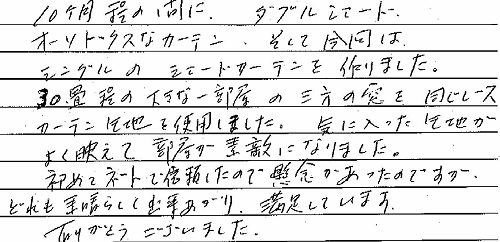 10ヶ月程の間に、ダブルシェード、
オーソドックスなカーテン、そして今回は
シングルのシェードカーテンを作りました。
30畳程の大きな一部屋の三方の窓を同じレース
カーテン生地を使用しました。気に入った生地が
よく映えて部屋が素敵になりました。
初めてネットで依頼したので懸念があったのですが、
どれも素晴らしく出来あがり、満足しています。
ありがとうございました。